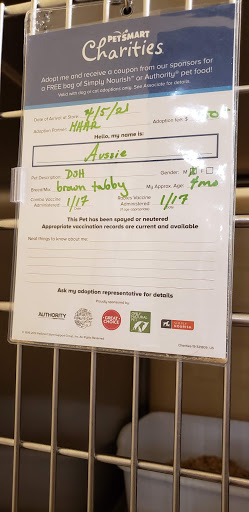 PETSMART
Charities
Adopt me and receive a coupon from our sponsors for
a FREE bag of Simply Nourish® or Authority® pet food!
Valid with dog or cat adoptions only. See Associate for details.
Date of Arrival at Store: 4/5/21
Adoption Partner: HAAR Adoption fee $
Hello, my name is:
Aussie
Pet Description: DSH Gender: M F
Breed/Mix: brown tabby My Approx. Age: 7mo
Combo Vaccine Administered: 1/17 Rabies Vaccine Administered: 1/17
If age appropriate
This Pet has been spayed or neutered
Appropriate vaccination records are current and available
Need things to know about me:
Ask my adoption representative for details
Proudly sponsored by
AUTHORITY GREAT CHOICE SIMPLY NOURISH